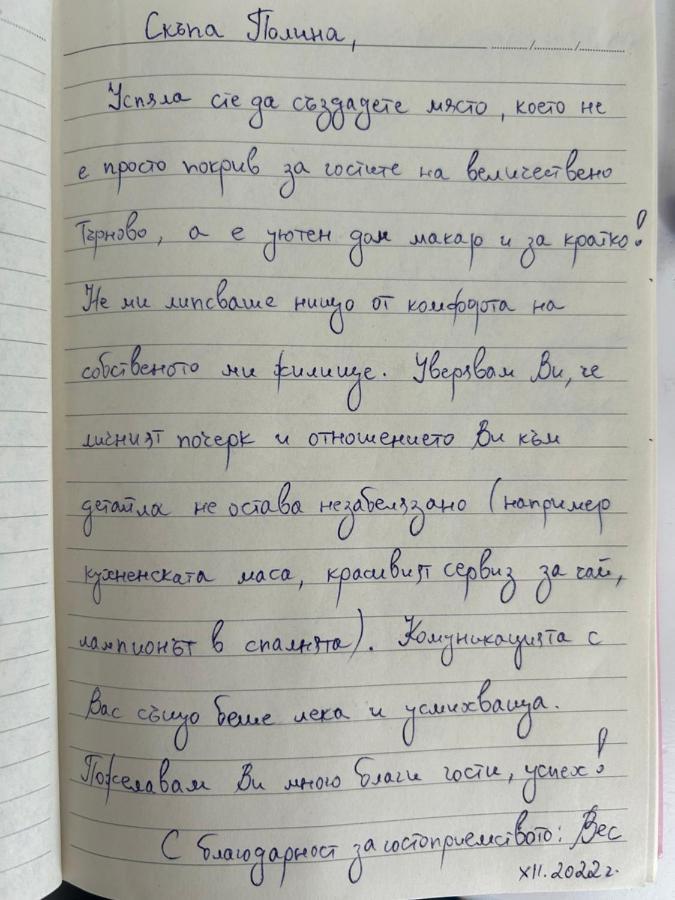 Скъпа Полина,
Успяла сте да създадете място, което не
е просто покрив за гостите на величествено
Търново, а е уютен дом макар и за кратко!
Не ми липсваше нищо от комфорта на
собственото ми жилище. Уверявам Ви, че
личният почерк и отношението Ви към
детайла не остава незабелязано (например
кухненската маса, красивият сервиз за чай,
лампионът в спалнята). Комуникацията с
Вас също беше лека и усмихваща.
Пожелавам Ви много благи гости, успех!
С благодарност за гостоприемството: Вес
XII.2022г.